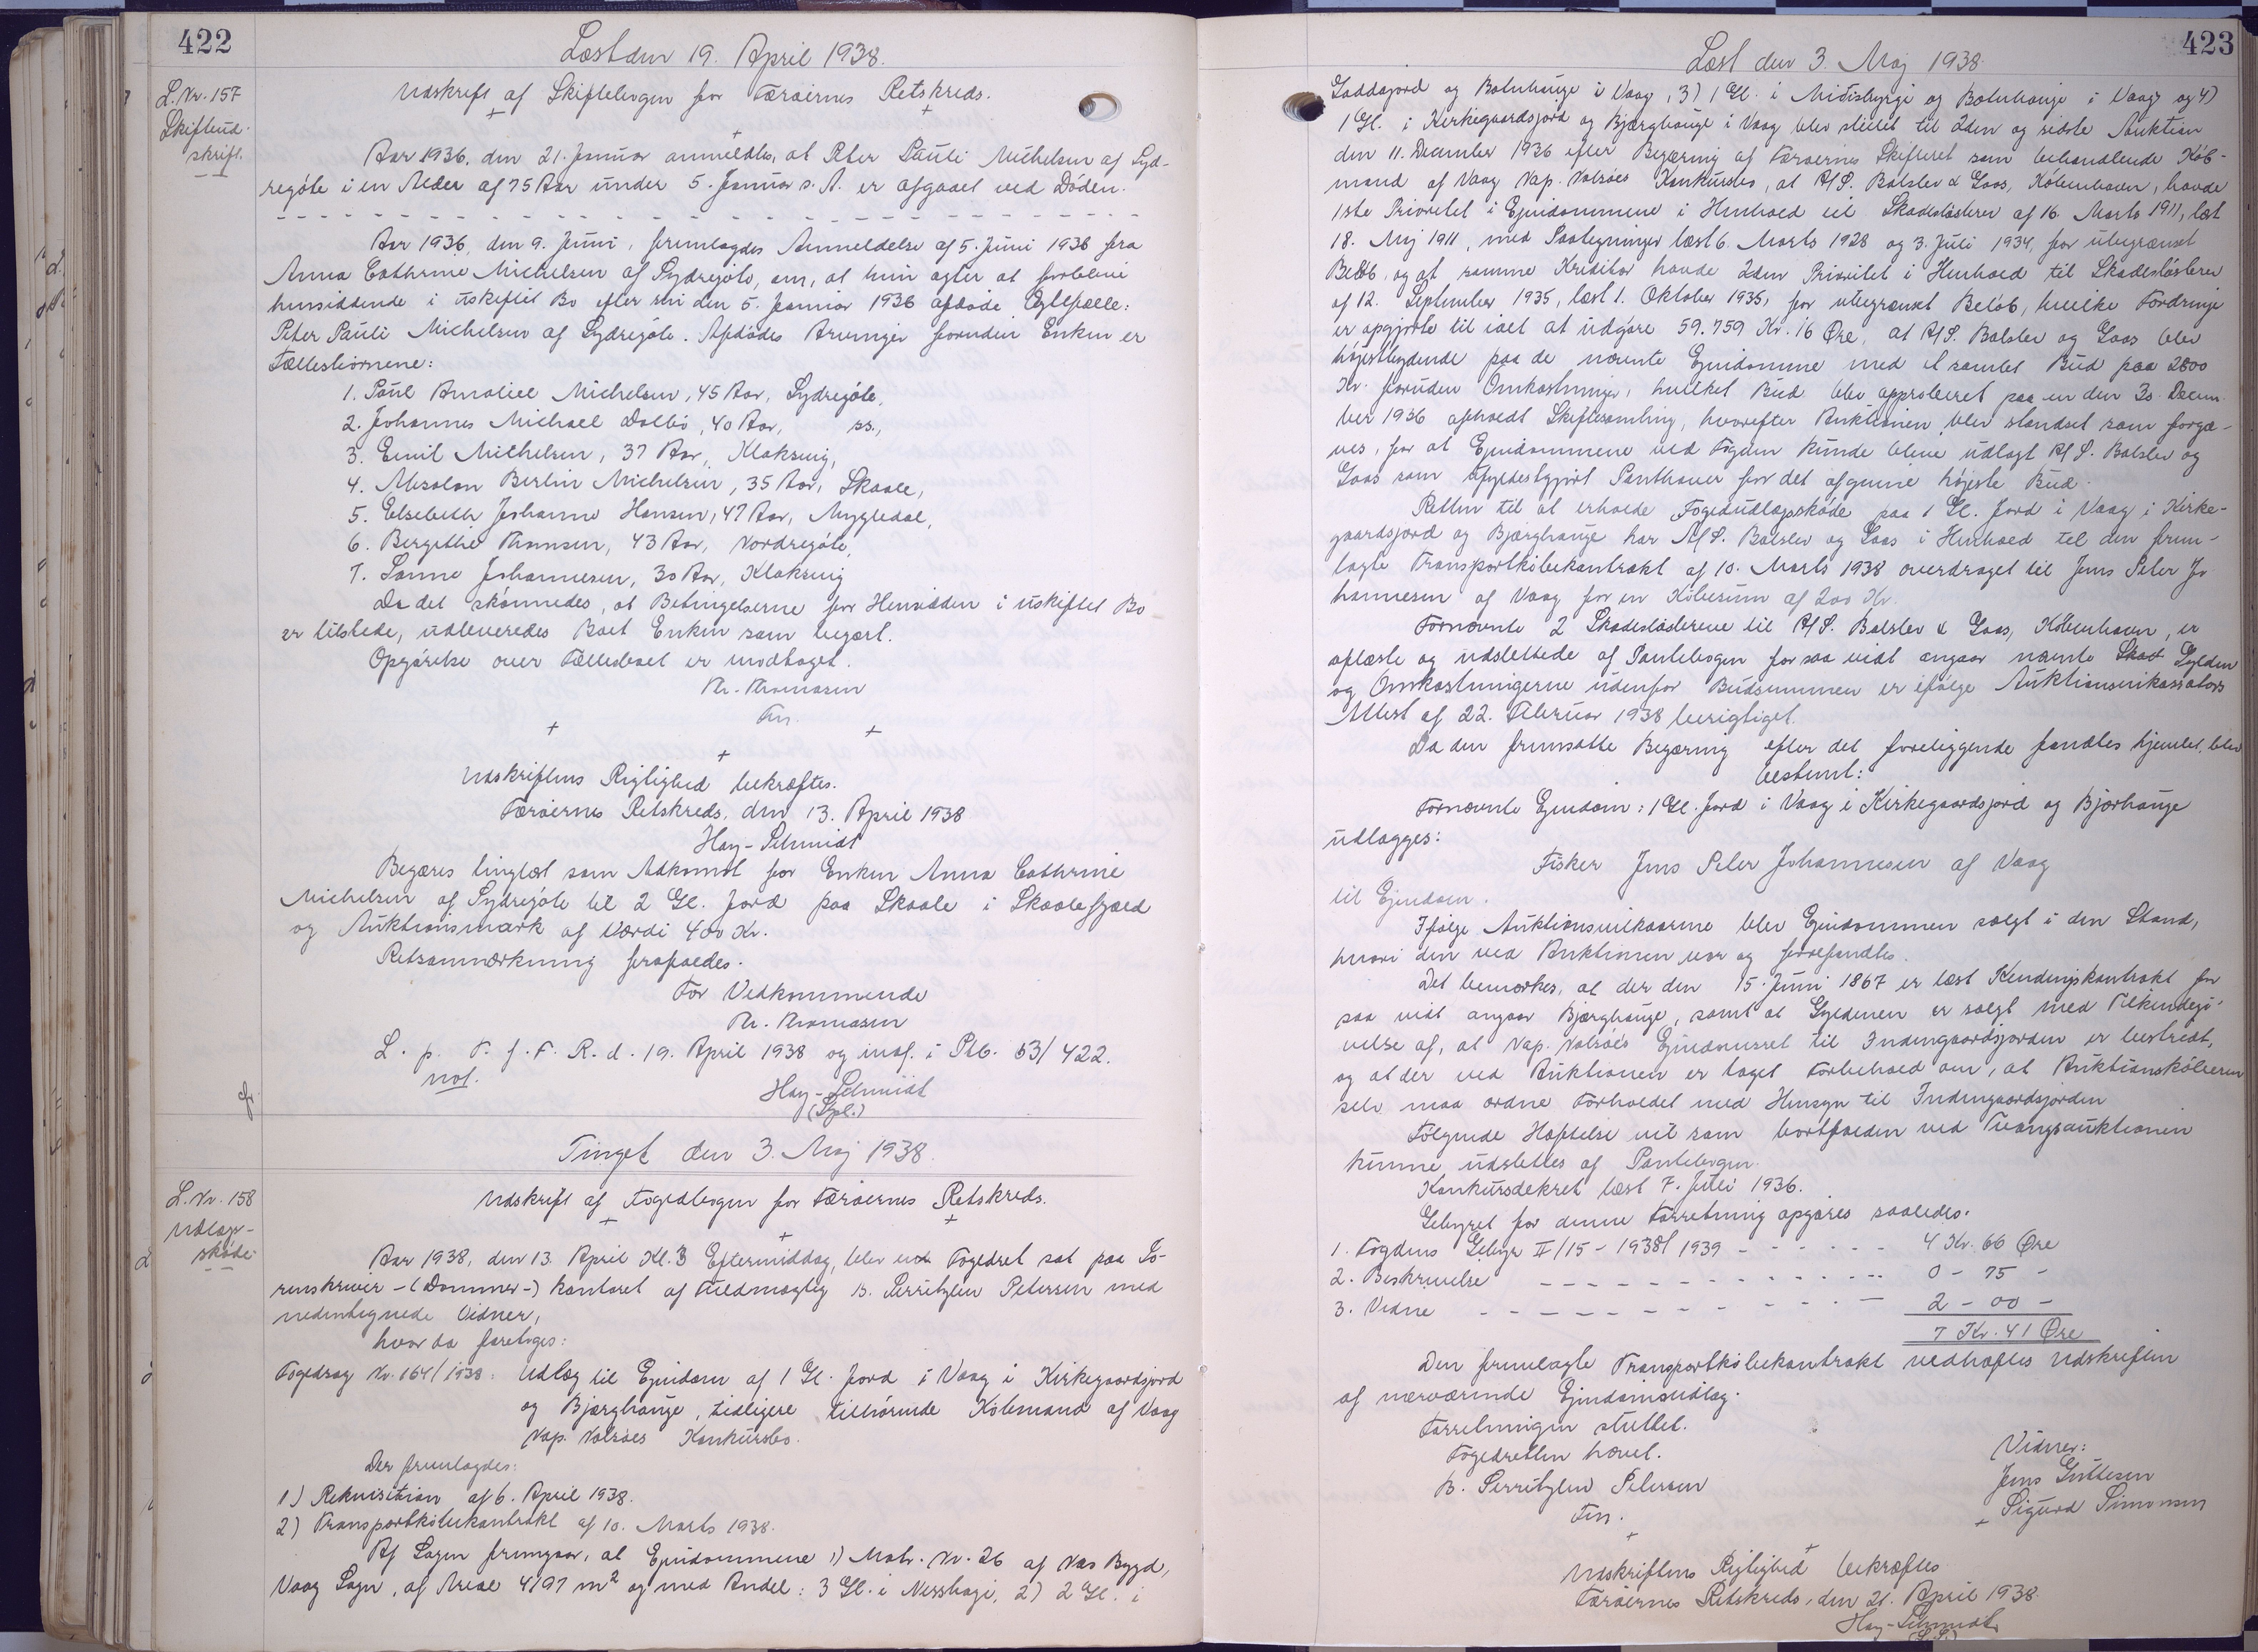 422
Læst den 19. April 1938.
L. Nr. 157
Skifteud-
skrift.
Udskrift af Skiftebogen for Færøernes Retskreds.
Aar 1936, den 21. Januar anmeldtes, at Peter Pauli Michelsen af Syd-
regöte i en Alder af 75 Aar under 5. Januar s. A. er afgaaet ved Döden.
Aar 1936, den 9. Juni, fremlagdes Anmeldelse af 5. Juni 1936 fra
Anna Cathrine Michelsen af Sydregöte, om, at hun agter at forblive
hensiddende i uskiftet Bo efter sin den 5. Januar 1936 afdöde Ægtefælle:
Peter Pauli Michelsen af Sydregöte. Afdödes Arvinger foruden Enken er
Fællesbörnene:
1. Poul Amaliel Michelsen, 45 Aar, Sydregöte,
2. Johannes Michael Dalbö, 40 Aar, ss.,
3. Emil Michelsen, 37 Aar, Klaksvig,
4. Absalon Berlin Michelsen, 35 Aar, Skaale,
5. Elsebeth Johanne Hansen, 47 Aar, Mygledal,
6. Bergithe Thomsen, 43 Aar, Nordregöte,
7. Sanne Johannesen, 30 Aar, Klaksvig
Da det skönnedes, at Betingelserne for Hensidden i uskiftet Bo
er tilstede, udleveredes Boet Enken som begært.
Opgörelse over Fællesboet er modtaget.
Th. Thomasen
Fm.
Udskriftens Rigtighed bekræftes.
Færöernes Retskreds, den 13. April 1938
Hay-Schmidt
Begæres tinglæst som Adkomst for Enken Anna Cathrine
Michelsen af Sydregöte til 2 Gl. Jord paa Skaale i Skaalefjæld
og Auktionsmark af Værdi 400 Kr.
Retsanmærkning frafaldes.
For Vedkommende
Th. Thomasen
L. p. T. f. F. R. d. 19. April 1938 og indf. i Ptb. 53/422.
not.
Hay-Schmidt
(Spl.)
Tinget den 3. Maj 1938.
L. Nr. 158
Udlægs-
sköde
Udskrift af Fogedbogen for Færöernes Retskreds.
Aar 1938, den 13. April Kl. 3 Eftermiddag, blev Fogedret sat paa So-
renskriver-(Dommer-) kontoret af Fuldmægtig B. Serritzlew Petersen med
nedentegnede Vidner,
hvor da foretoges:
Fogedsag Nr. 164/1938: Udlæg til Ejendom af 1 Gl. Jord i Vaag i Kirkegaardsjord
og Bjarghauge, tidligere tilhörende Köbmand af Vaag
Nap. Nolsöes Konkursbo.
Der fremlagdes:
1) Rekvisition af 6. April 1938.
2) Transportköbekontrakt af 10. Marts 1938.
Af Sagen fremgaar, at Ejendommene 1) Matr. Nr. 26 af Næs Bygd,
Vaag Sogn, af Areal 4197 m² og med Andel: 3 Gl. i Nesshagi, 2) 2 Gl. i
423
Læst den 3. Maj 1938.
Gaddajord og Botnhauge i Vaag, 3) 1 Gl. i Midisbyrgi og Botnhauge i Vaag og 4)
1 Gl. i Kirkegaardsjord og Bjarghauge i Vaag blev stillet til 2den og sidste Auktion
den 11. December 1936 efter Begæring af Færöernes Skifteret som behandlende Köb-
mand af Vaag Nap. Nolsöes Konkursbo, at A/S. Balslev & Goos, Köbenhavn, havde
1ste Prioritet i Ejendommene i Henhold til Skadeslösbrev af 16. Marts 1911, læst
18. Maj 1911, med Paategninger læst 6. Marts 1928 og 3. Juli 1934, for ubegrænset
Belöb, og at samme Kreditor havde 2den Prioritet i Henhold til Skadeslösbrev
af 12. September 1935, læst 1. Oktober 1935, for ubegrænset Belöb, hvilke Fordringer
er opgjorte til ialt at udgöre 59.759 Kr. 16 Öre, at A/S. Balslev og Goos blev
höjestbydende paa de nævnte Ejendomme med et samlet Bud paa 2800
Kr. foruden Omkostninger, hvilket Bud blev approberet paa en den 30. Decem-
ber 1936 afholdt Skiftesamling, hvorefter Auktionen blev standset som forgæ-
ves, for at Ejendommene ved Fogden kunde blive udlagt A/S. Balslev og
Goos som Pantheaver for det afgivne höjeste Bud.
Retten til at erholde Fogedudlægsskøde paa 1 Gl. Jord i Vaag i Kirke-
gaardsjord og Bjarghauge har A/S. Balslev og Goos i Henhold til den frem-
lagte Transportköbekontrakt af 10. Marts 1938 overdraget til Jens Peter Jo-
hannesen af Vaag for en Köbesum af 200 Kr.
Fornævnte 2 Skadeslösbreve til A/S. Balslev & Goos, Köbenhavn, er
aflæste og udslettede af Pantebogen for saa vidt angaar nævnte Gylden
og Omkostningerne udenfor Budsummen er ifölge Auktionsinkassators
Attest af 22. Februar 1938 berigtiget.
Da den fremsatte Begæring efter det foreliggende fandtes hjemlet, blev
bestemt:
Fornævnte Ejendom: 1 Gl. Jord i Vaag i Kirkegaardsjord og Bjarhauge
udlægges:
Fisker Jens Peter Johannesen af Vaag
til Ejendom.
Ifölge Auktionsvilkaarene blev Ejendommen solgt i den Stand,
hvori den ved Auktionen var og forefandtes.
Det bemærkes, at der den 15. Juni 1867 er læst Kendingskontrakt for
saa vidt angaar Bjarghauge, samt at Gyldenen er solgt med Tilkendegi-
velse af, at Nap. Nolsöes Ejendomsret til Indengaardsjorden er bestridt,
og at der ved Auktionen er taget Forbehold om, at Auktionsköberen
selv maa ordne Forholdet med Hensyn til Indengaardsjorden
Fölgende Hæftelse vil som bortfalden ved Tvangsauktionen
kunne udslettes af Pantebogen.
Konkursdekret læst 7. Juli 1936.
Gebyret for denne Forretning opgöres saaledes:
1. Fogdens Gebyr II/15 - 1938/1939 - - - - - - 4 Kr. 66 Öre
2. Beskrivelse - - - - - - - - - - - - 0 - 75 -
3. Vidne - - - - - - - - - - - - 2 - 00 -
7 Kr. 41 Öre
Den fremlagte Transportköbekontrakt vedhæftes Udskriften
af nærværende Ejendomsudlæg.
Forretningen sluttet.
Fogedretten hævet.
B. Serritzlew Petersen
Fm.
Vidner:
Jens Guttesen
Sigurd Simonsen
Udskriftens Rigtighed bekræftes
Færöernes Retskreds, den 21. April 1938.
Hay-Schmidt